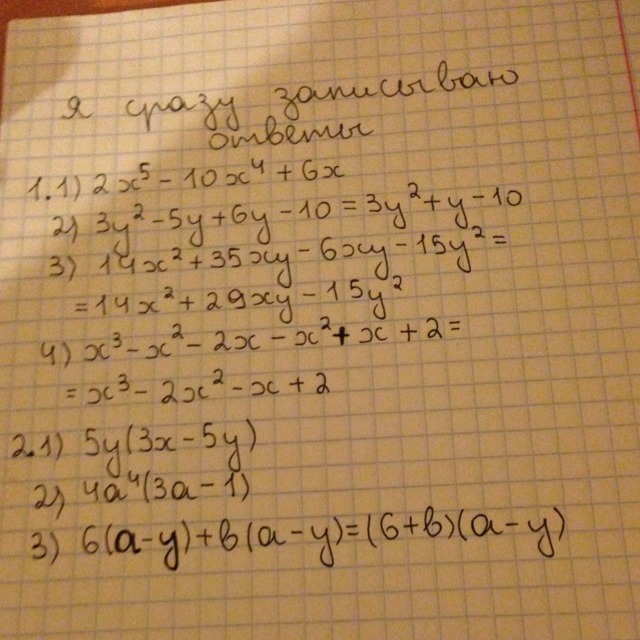 я сразу записываю
ответы
1.1) 2x⁵ - 10x⁴ + 6x
2) 3y² - 5y + 6y - 10 = 3y² + y - 10
3) 14x² + 35xy - 6xy - 15y² =
= 14x² + 29xy - 15y²
4) x³ - x² - 2x - x² + x + 2 =
= x³ - 2x² - x + 2
2.1) 5y(3x - 5y)
2) 4a⁴(3a - 1)
3) 6(a - y) + b(a - y) = (6 + b)(a - y)